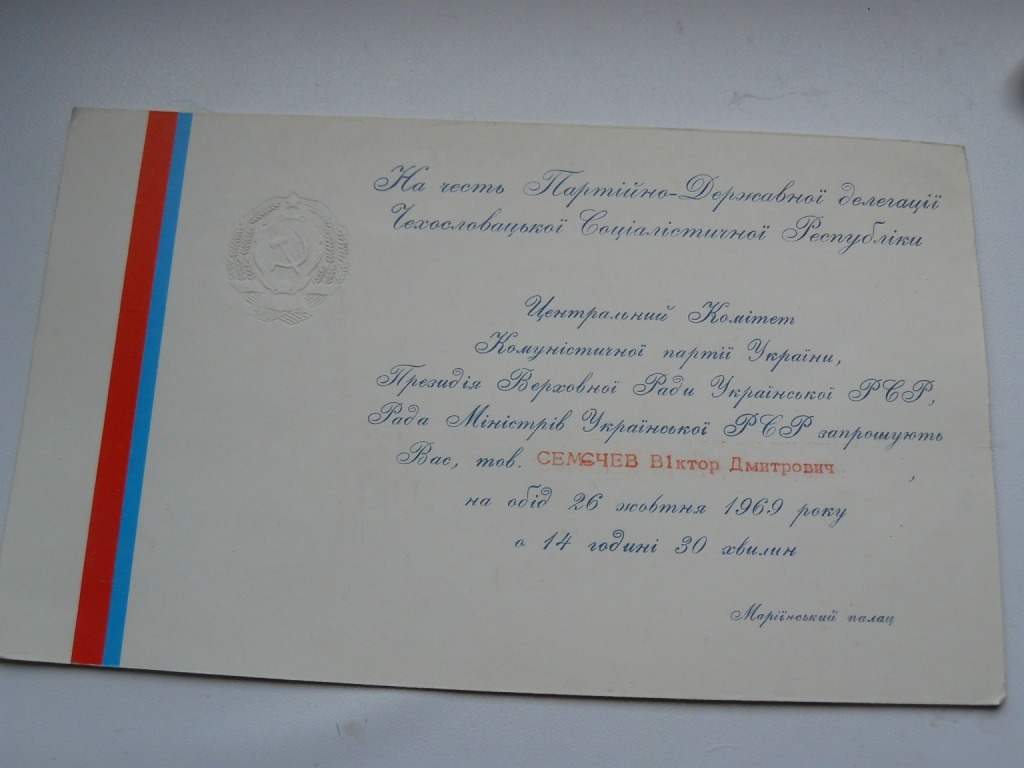 На честь Партійно-Державної делегації
Чехословацької Соціалістичної Республіки
Центральний Комітет
Комуністичної партії України,
Президія Верховної Ради Української РСР,
Рада Міністрів Української РСР запрошують
Вас, тов. СЕМЄЧЕВ В1ктор Дмитрович,
на обід 26 жовтня 1969 року
о 14 годині 30 хвилин
Маріїнський палац